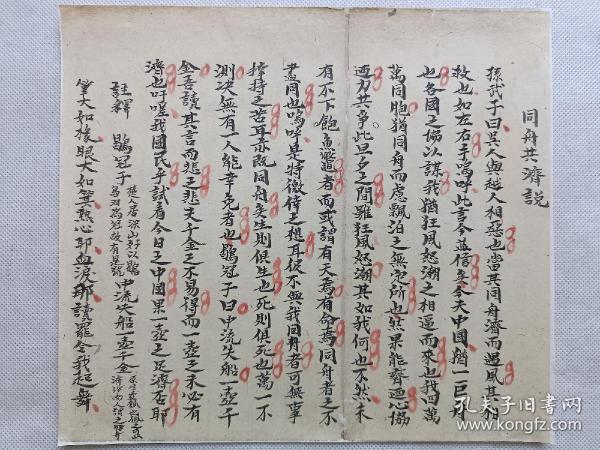 同舟共濟說
孫武子曰吳人與越人相惡也當其同舟濟而遇風其相
救也如左右手嗚呼此言今益信矣今夫中國猶一巨舟
也各國之協以謀我猶狂風怒潮之相逼而來也我四萬
萬同胞猶同舟而慮飄泊之無定所也然果能齊心協
力共此旦夕之間雖狂風怒潮其如我何也不然未
有不下飽魚鱉者而或謂有天焉有命焉同舟者之不
盡同也嗚呼是特僥倖之想耳彼不與我同舟者可無事
持之苦耳亦既同舟矣生則俱生也死則俱死也萬一不
測決無有一人能幸免者也鶡冠子曰中流失船一壺千
金吾讀其言而悲之悲夫千金之不易得而一壺之未必有
濟也吁嗟我國民乎試看今日之中國果一壺之足濟否耶
註釋 鶡冠子 楚人居深山以鶡為冠故有是號 中流失船一壺千金
筆大如椽眼大如箕熱心耶血淚耶讀罷令我起舞
孔夫子旧书网
kongfz.com